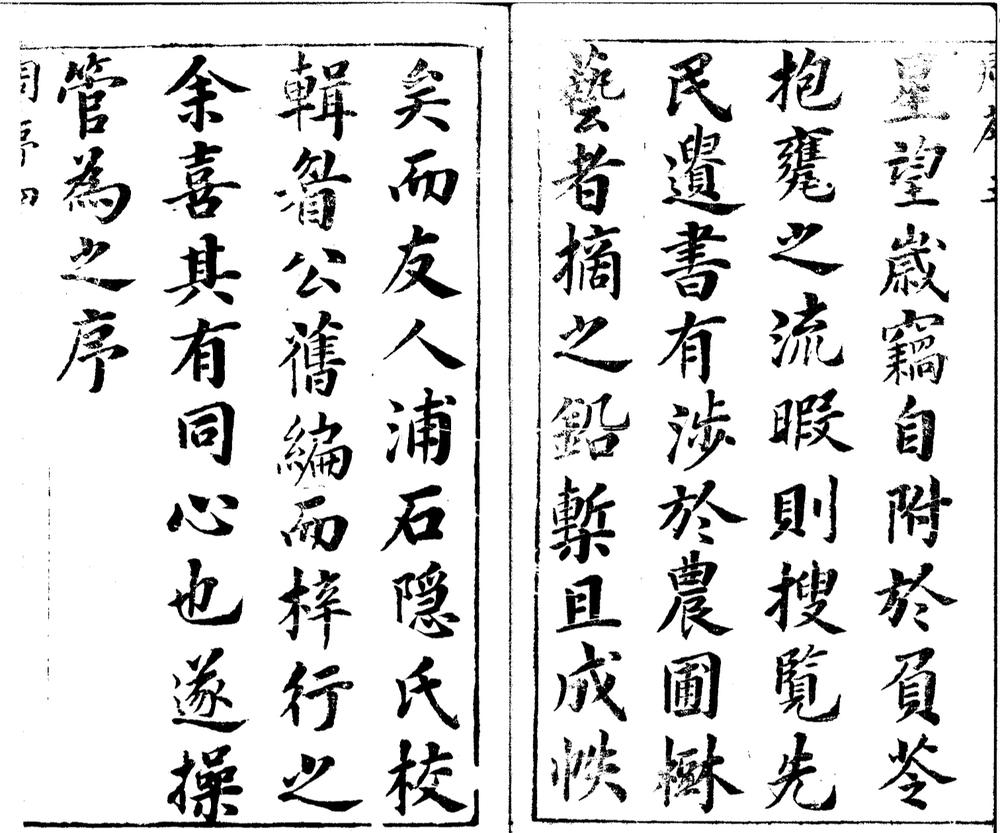 星望歲竊自附於負苓
抱甕之流暇則搜覽先
民遺書有涉於農圃樹
藝者摘之鉛槧且成帙
矣而友人浦石隱氏校
輯眘公舊編而梓行之
余喜其有同心也遂操
管為之序